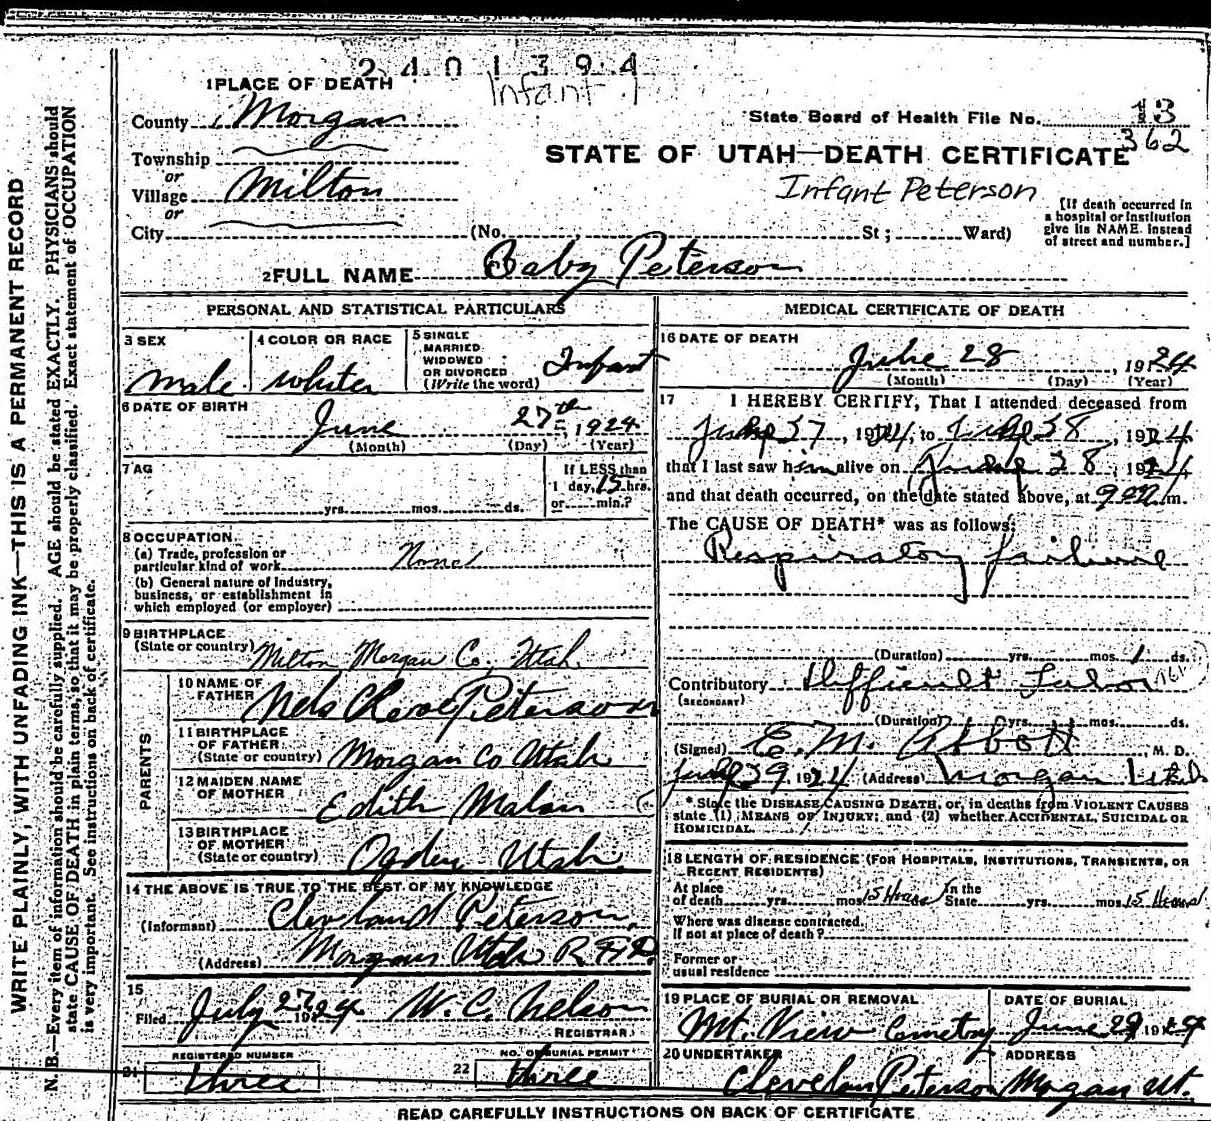 2401394
Infant 1
1 PLACE OF DEATH
County Morgan
State Board of Health File No. 13
362
Township
or
Village Milton
or
City (No. St; Ward)
STATE OF UTAH—DEATH CERTIFICATE
Infant Peterson
[If death occurred in
a hospital or institution
give its NAME instead
of street and number.]
2 FULL NAME Baby Peterson
PERSONAL AND STATISTICAL PARTICULARS
3 SEX
male
4 COLOR OR RACE
white
5 SINGLE
MARRIED
WIDOWED
OR DIVORCED
(Write the word)
Infant
6 DATE OF BIRTH
June 27th, 1924
(Month) (Day) (Year)
7 AG
yrs. mos. ds.
If LESS than
1 day, 15 hrs.
or min.?
8 OCCUPATION
(a) Trade, profession or
particular kind of work None
(b) General nature of Industry,
business, or establishment in
which employed (or employer)
9 BIRTHPLACE
(State or country) Milton Morgan Co, Utah
PARENTS
10 NAME OF
FATHER Nels Cleve Peterson
11 BIRTHPLACE
OF FATHER
(State or country) Morgan Co Utah
12 MAIDEN NAME
OF MOTHER Edith Malan
13 BIRTHPLACE
OF MOTHER
(State or country) Ogden Utah
14 THE ABOVE IS TRUE TO THE BEST OF MY KNOWLEDGE
(Informant) Cleveland Peterson
(Address) Morgan Utah R F D
15
Filed July 27 1924 W. C. Nelson
REGISTRAR
REGISTERED NUMBER
21 three
NO. OF BURIAL PERMIT
22 three
MEDICAL CERTIFICATE OF DEATH
16 DATE OF DEATH
June 28, 1924
(Month) (Day) (Year)
17 I HEREBY CERTIFY, That I attended deceased from
27, 1924, to 28, 1924
that I last saw him alive on 28, 1924
and that death occurred, on the date stated above, at m.
The CAUSE OF DEATH* was as follows:
Respiratory failure
(Duration) yrs. mos. 1 ds.
Contributory Difficult Labor
(SECONDARY)
(Duration) yrs. mos. ds.
(Signed) E. M. Abbott, M. D.
29, 1924 (Address) Morgan Utah
* State the DISEASE CAUSING DEATH, or, in deaths from VIOLENT CAUSES
state (1) MEANS OF INJURY; and (2) whether ACCIDENTAL, SUICIDAL OR
HOMICIDAL.
18 LENGTH OF RESIDENCE (FOR HOSPITALS, INSTITUTIONS, TRANSIENTS, OR
RECENT RESIDENTS)
At place
of death yrs. mos. 15 Hours
In the
State yrs. mos. 15 Hours
Where was disease contracted.
If not at place of death?
Former or
usual residence
19 PLACE OF BURIAL OR REMOVAL
Mt. View Cemetery
DATE OF BURIAL
June 29, 19
20 UNDERTAKER
Clevelan Peterson
ADDRESS
Morgan Ut.
READ CAREFULLY INSTRUCTIONS ON BACK OF CERTIFICATE
WRITE PLAINLY, WITH UNFADING INK—THIS IS A PERMANENT RECORD
N. B.—Every item of information should be carefully supplied. AGE should be stated EXACTLY. PHYSICIANS should
state CAUSE OF DEATH in plain terms, so that it may be properly classified. Exact statement of OCCUPATION
is very important. See instructions on back of certificate.